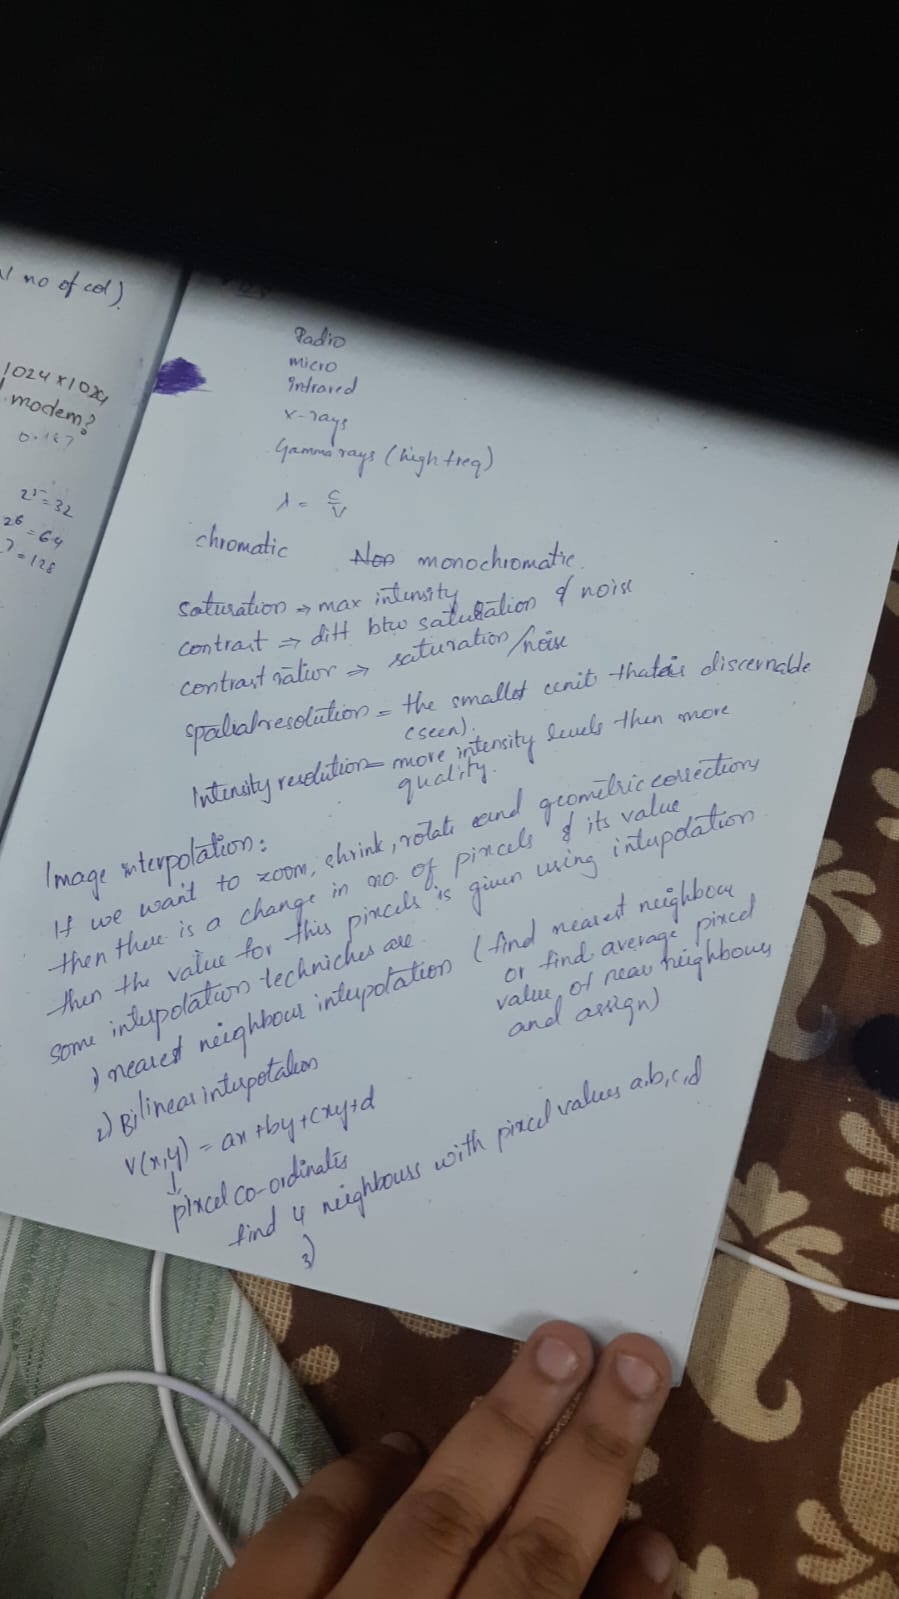 no of col).
1024 x 1024
modem?
0.187
2⁵=32
2⁶=64
7=128
Radio
micro
infrared
x-rays
Gamma rays (high freq)
λ = c/v
chromatic Non monochromatic.
saturation ⇒ max intensity
contrast ⇒ diff btw saturation & noise
contrast ratior ⇒ saturation/noise
spatial resolution = the smallest unit that is discernable
(seen).
Intensity resolution = more intensity levels then more
quality.
Image interpolation:
If we want to zoom, shrink, rotate and geometric corrections
then there is a change in no. of pixcels & its value
then the value for this pixcels is given using interpolation
some interpolation techniches are
1) nearest neighbour interpolation (find nearest neighbour
or find average pixcel
value of near neighbours
and assign)
2) Bilinear interpotation
V(x,y) = ax+by+cxy+d
↓
pixcel co-ordinates
find 4 neighbourss with pixcel values a,b,c,d
3)